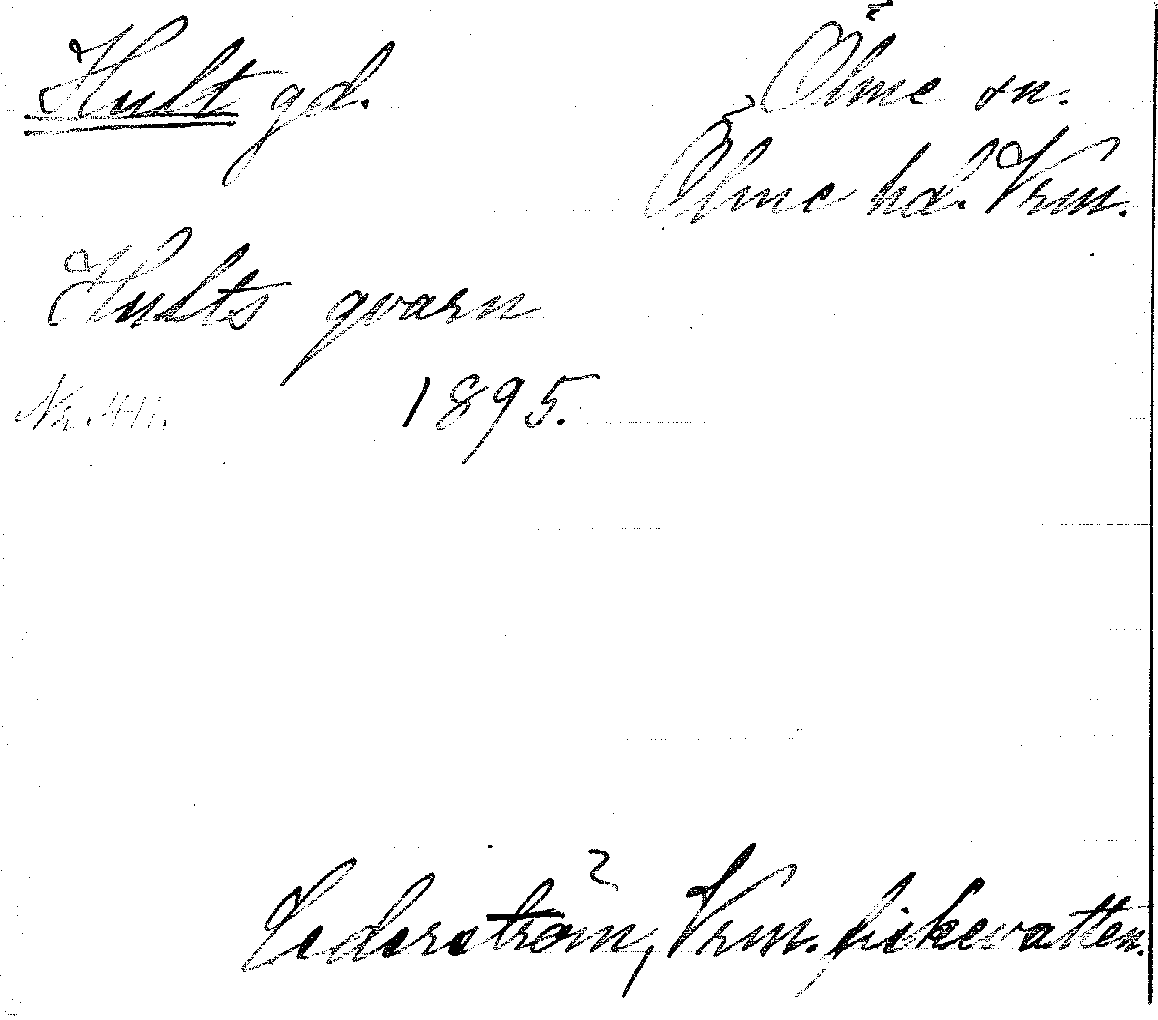 Hult gd.
Ölme sn.
Ölme hd. Vrm.
Hults qvarn
1895.
Cederström, Vrm. fiskevatten.